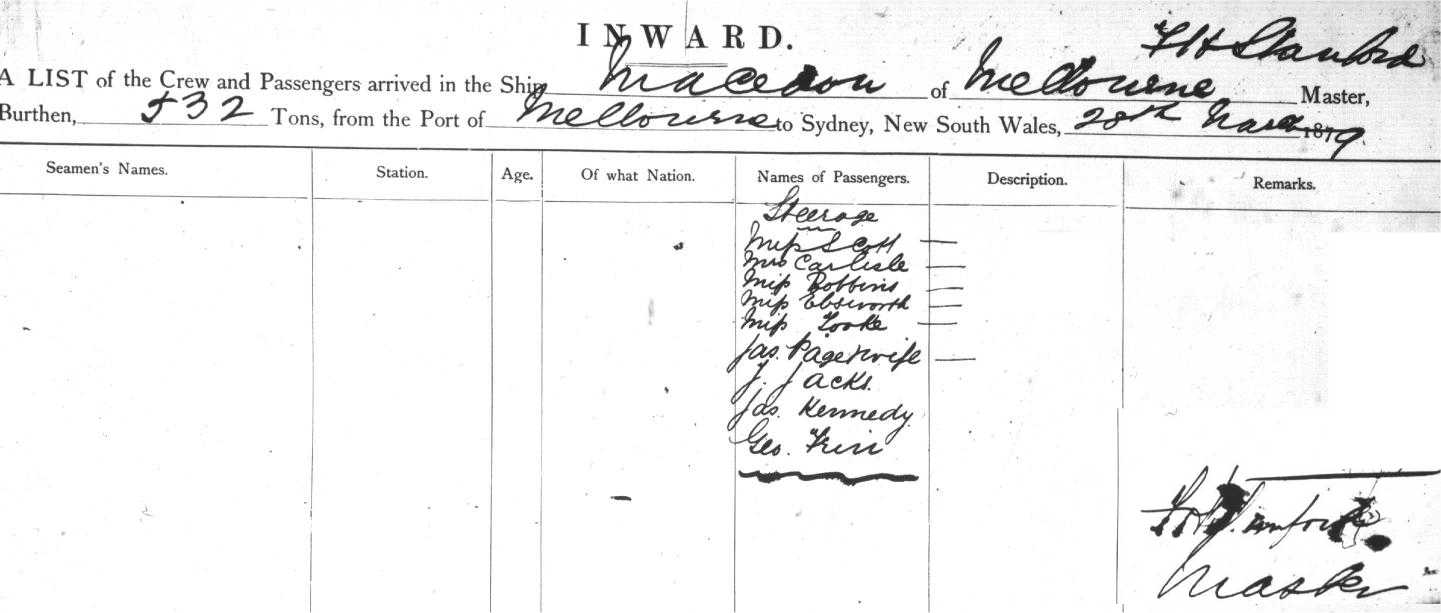 INWARD.
F H Stanford
A LIST of the Crew and Passengers arrived in the Ship Macedon of Melbourne Master,
Burthen, 532 Tons, from the Port of Melbourne to Sydney, New South Wales, 28th March 1879.
Seamen's Names. Station. Age. Of what Nation. Names of Passengers. Description. Remarks.
Steerage
Miss Scott —
Mrs Carlisle —
Miss Robbins —
Miss Ebsworth —
Miss Looke —
Jas. Page & wife —
J. Jacks.
Jas. Kennedy
Geo.
Master